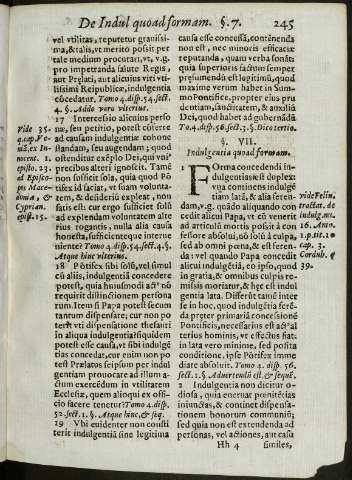 De Indul quoad formam. §. 7. 245
vel vtilitas, reputetur grauissi-
ma, & talis, vt meritò possit per
tale medium procurari, vt, v.g.
pro impetranda salute Regis,
aut Prelati, aut alicuius viri vti-
lissimi Reipublicæ, indulgentia
cõcedatur. Tomo 4. disp. 54. sect.
4. §. Addo vero vlterius.
17 Intercessio alicuius perso
næ, seu petitio, potest cõferre
ad causam indulgentiæ cohone
standam, seu augendam; quod
ostenditur exẽplo Dei, qui vni{us}
precibus alteri ignoscit. Tamẽ
non sufficit sola, quia quod Põ
tifex id faciat, vt suam volunta-
tem, & desideriũ expleat, non
satis est: cur ergo sufficiet solũ
ad explendam voluntatem alte
rius rogantis, nulla alia causa
honesta, sufficiente que interue
niente? Tomo 4. disp. 54. sect. 4. §.
Atque hinc vlterius.
Vide 35.
q. cap. Vo-
nu. ex In-
nocent. 1.
epist. 23.
ad Episco-
pos Mace-
donia, &
Cyprian.
epist. 15.
18 Põtifex sibi soli, vel simul
cũ aliis, indulgentiã concedere
potest, quia huiusmodi act{us} nõ
requirit distinctionem persona
rum. Item si Papa potest secum
tantum dispensare, cur non po
terit vti dispensatione thesauri
in aliqua indulgentia? siquidem
potest esse causa, vt sibi indulgẽ
tias concedat, cur enim non po
test Prælatos seipsum per indul
gentiam prouocare ad illum a-
ctum exercẽdum in vtilitatem
Ecclesiæ, quem alioqui ex offi-
cio facere tenetur? Tomo 4. disp.
52. sect. 1. §. Atque hinc, & seq.
19 Vbi euidenter non consti
terit indulgentiã sine legitima
causa esse concessã, contẽnenda
non est, nec minoris efficaciæ
reputanda, quam verba sonãt;
quia superioris factum semper
præsumendũ est legitimũ, quod
maxime verum habet in Sum-
mo Pontifice, propter eius pru
dentiam, sanctitatem, & auxiliũ
Dei, quod habet ad gubernãdũ
To. 4. disp. 56. sect. 3. §. Dico tertio.
§. VII.
Indulgentia quoad formam.
1 FOrma concedendi in-
dulgentias est duplex
vna continens indulgẽ
tiam latã, & alia feren-
dam, v.g. quãdo aliquando con
cedit alicui Papa, vt cũ venerit
ad articulũ mortis possit à con
fessore absolui, nõ solũ à culpa,
sed ab omni pena, & est feren-
da: vel quando Papa concedit
alicui indulgẽtiã, eo ipso, quod
in gratia, & omnibus culpis re-
missis moriatur, & hęc est indul
gentia lata. Differũt tamẽ inter
se in hoc, quod indulgẽtia ferẽ-
da pręter primariã concessionẽ
Pontificis, necessarius est act{us} al
terius hominis, vt effect{us} fiat:
in lata vero minime, sed posita
conditione, ipse Põtifex imme
diate absoluit. Tomo 4. disp. 56.
sect. 1. §. Aduertendũ est, & sequẽ.
vide Felin.
tractat. de
indulg. ms.
16. Anin.
1. p. tit. 10
cap. 3.
Cordub. q
39.
2 Indulgentia non dicitur o-
diosa, quia eneruat pœnitẽtias
iniunctas, & continet dispensa-
tionem honorum communiũ;
sed quia non est extendenda ad
personas, vel actiones, aut casa
Hh 4 similes,